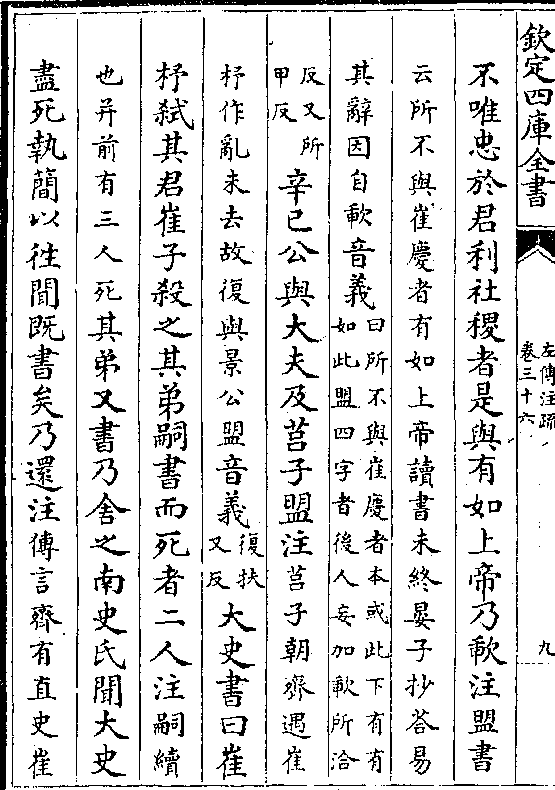 欽定四庫全書
左傳注疏
卷三十六
九
不唯忠於君利社稷者是與有如上帝乃歃注盟書
云所不與崔慶者有如上帝讀書未終晏子抄荅易
其辭因自歃音義曰所不與崔慶者本或此下有有
如此盟四字者後人妄加歃所洽
反又所
甲反
辛巳公與大夫及莒子盟注莒子朝齊遇崔
杼作亂未去故復與景公盟音義復扶
又反
大史書曰崔
杼弑其君崔子殺之其弟嗣書而死者二人注嗣續
也并前有三人死其弟又書乃舍之南史氏聞大史
盡死執簡以徃聞既書矣乃還注傳言齊有直史崔